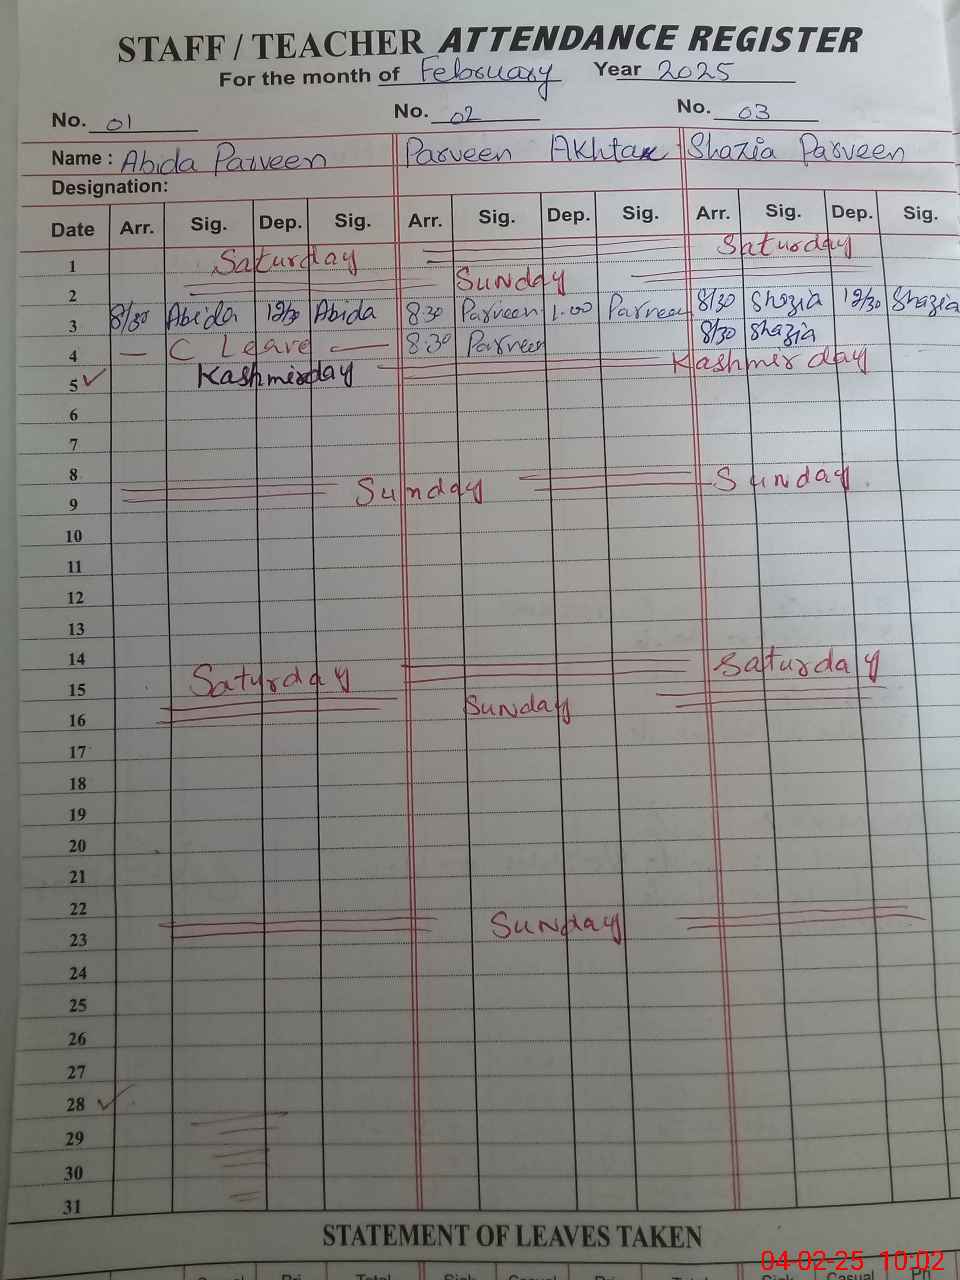 STAFF / TEACHER ATTENDANCE REGISTER
For the month of February Year 2025
No. 01 No. 02 No. 03
Name : Abida Parveen Parveen Akhtar Shazia Parveen
Designation:
Date Arr. Sig. Dep. Sig. Arr. Sig. Dep. Sig. Arr. Sig. Dep. Sig.
1 Saturday Saturday
2 Sunday
3 8/30 Abida 12/30 Abida 8:30 Parveen 1.00 Parveen 8/30 Shazia 12/30 Shazia
4 — C Leave — 8:30 Parveen 8/30 Shazia
5 ✓ Kashmirday Kashmir day
6
7
8
9 Sunday Sunday
10
11
12
13
14
15 Saturday Saturday
16 Sunday
17
18
19
20
21
22
23 Sunday
24
25
26
27
28 ✓
29
30
31
STATEMENT OF LEAVES TAKEN
04-02-25 10:02